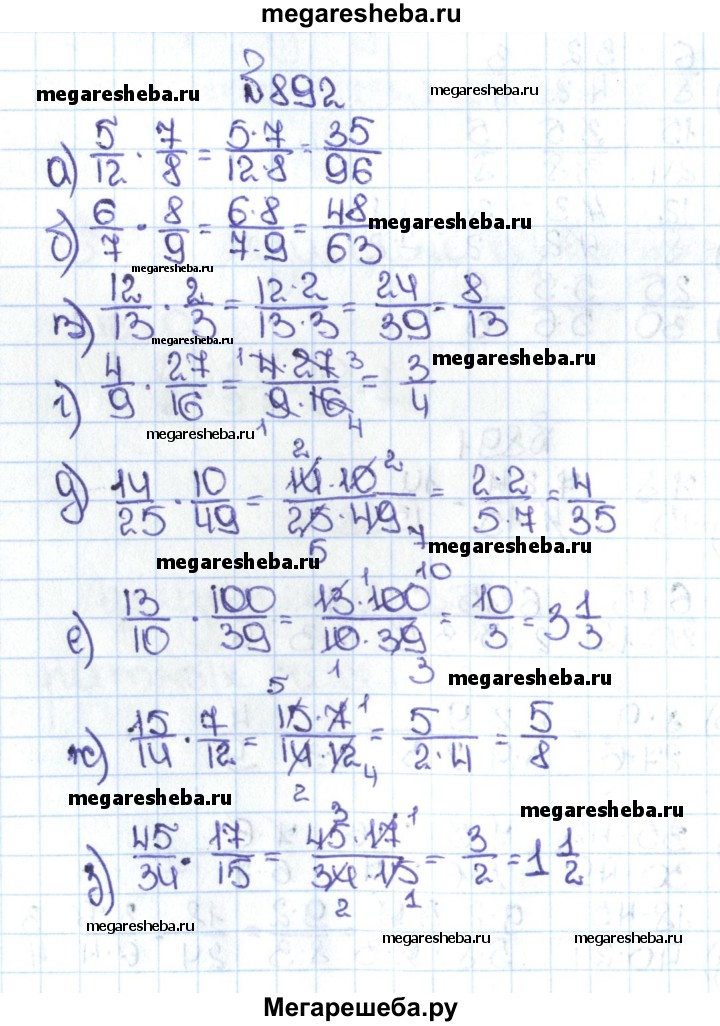 megaresheba.ru
megaresheba.ru №892 megaresheba.ru
а) 5/12 · 7/8 = 5·7/12·8 = 35/96
б) 6/7 · 8/9 = 6·8/7·9 = 48/63 megaresheba.ru
megaresheba.ru
в) 12/13 · 2/3 = 12·2/13·3 = 24/39 = 8/13
megaresheba.ru
megaresheba.ru
г) 4/9 · 27/16 = 1 4·27 3/9·16 1 4 = 3/4
megaresheba.ru
д) 14/25 · 10/49 = 2 14·10 2/25·49 5 7 = 2·2/5·7 = 4/35
megaresheba.ru megaresheba.ru
е) 13/10 · 100/39 = 1 10 13·100/10·39 1 3 = 10/3 = 3 1/3
megaresheba.ru
ж) 15/14 · 7/12 = 5 15·7 1/14·12 2 4 = 5/2·4 = 5/8
megaresheba.ru megaresheba.ru
з) 45/34 · 17/15 = 3 45·17 1/34·15 2 1 = 3/2 = 1 1/2
megaresheba.ru megaresheba.ru megaresheba.ru
Мегарешеба.ру